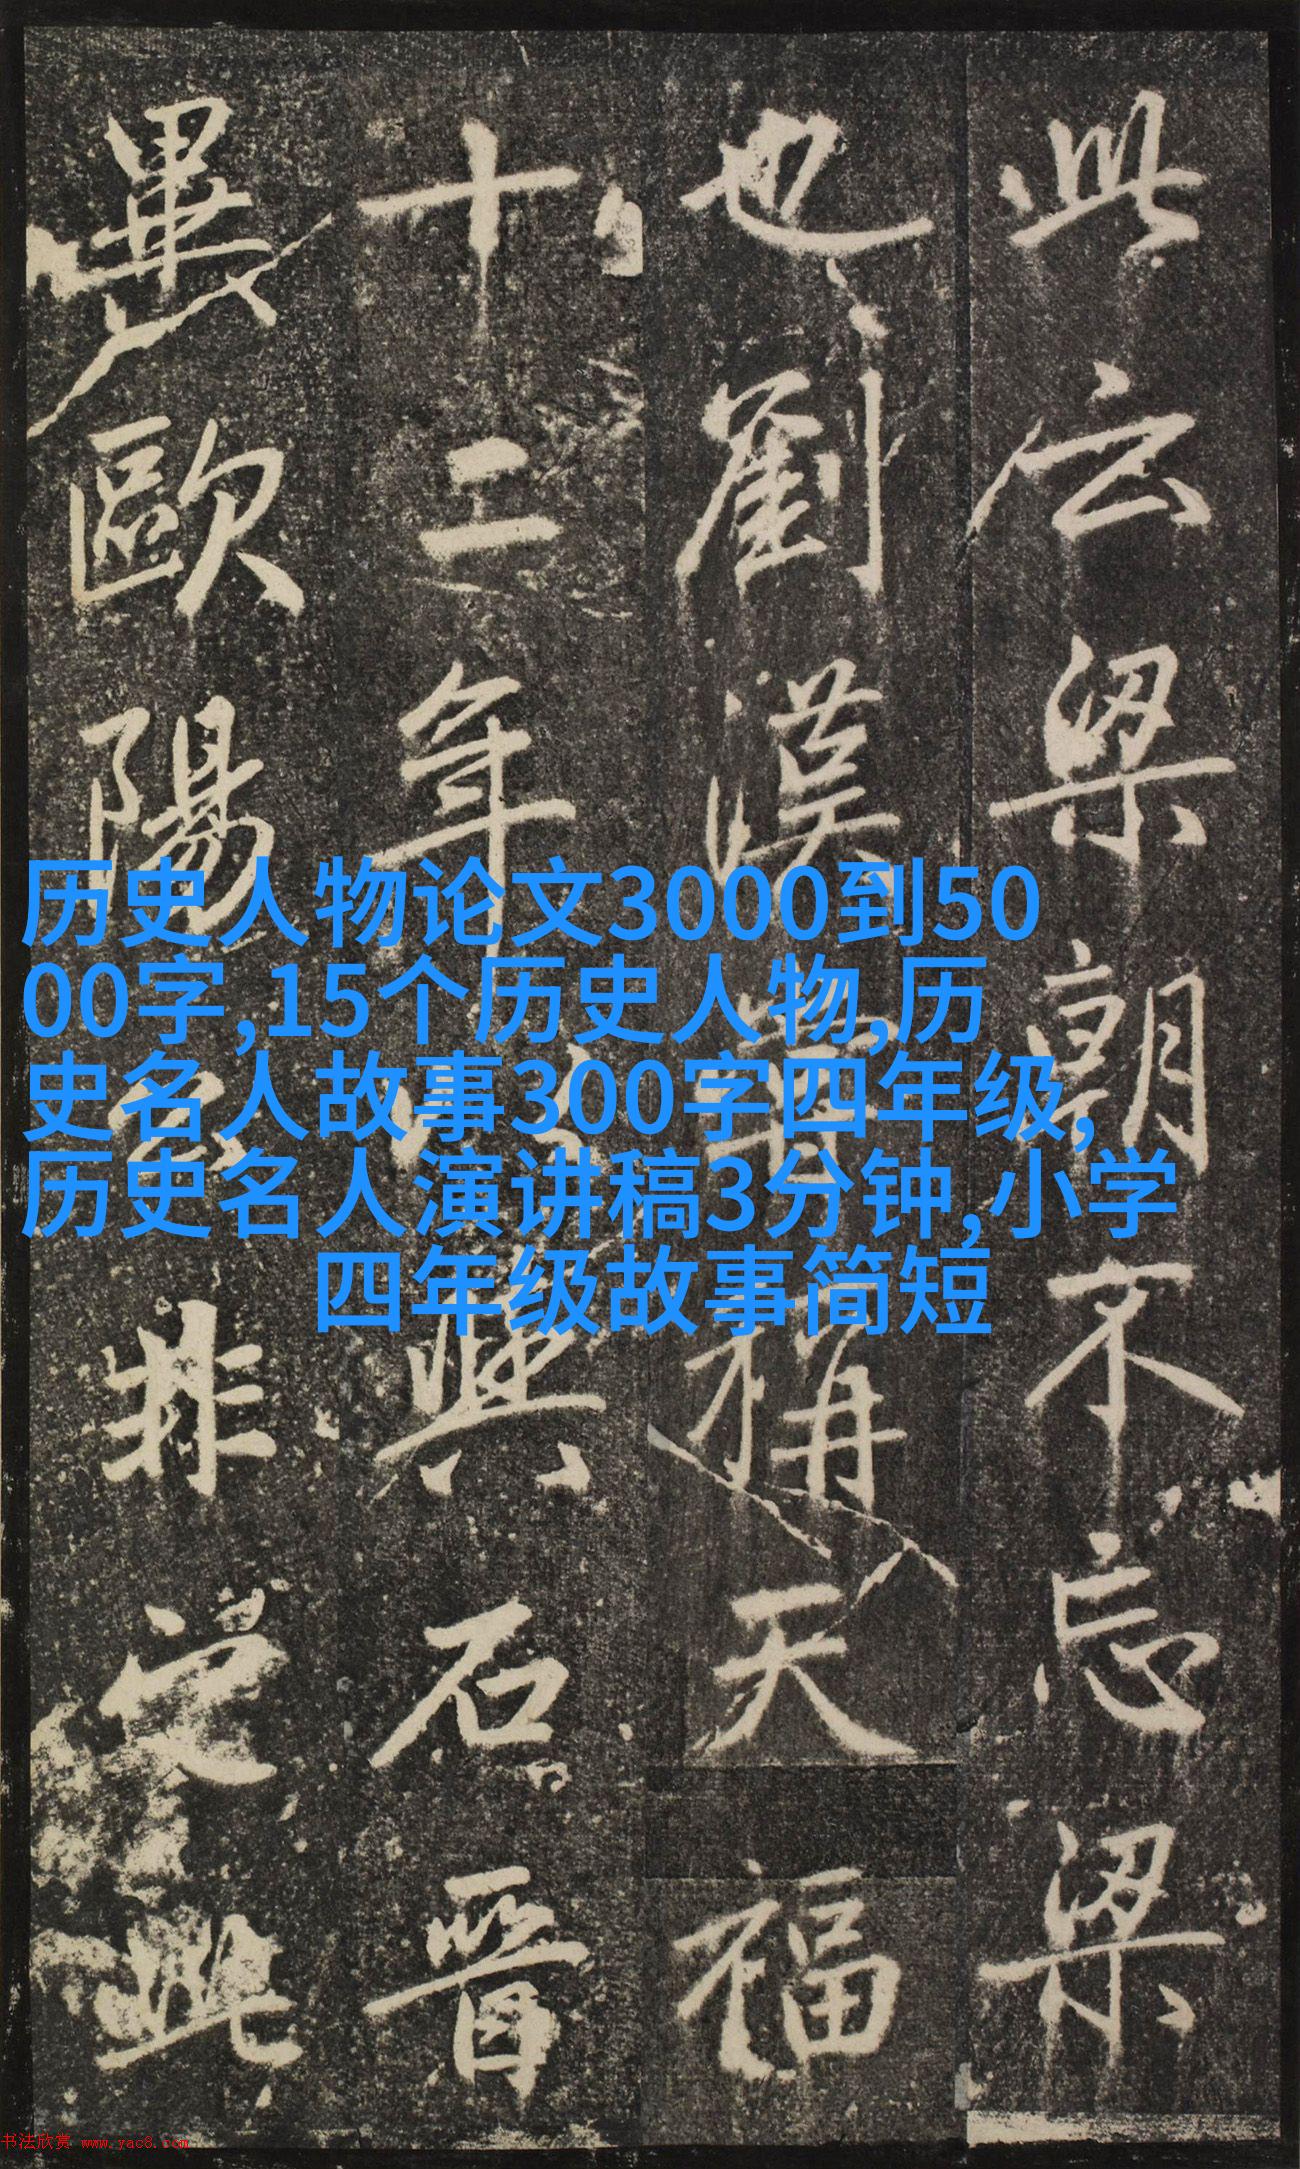 此云梁朝不忘梁
也劉漢稱天福
十二年與石晉
畢歐陽公非此
历史人物论文3000到50
00字,15个历史人物,历
史名人故事300字四年级,
历史名人演讲稿3分钟,小学
四年级故事简短
书法欣赏 www.yac8.com